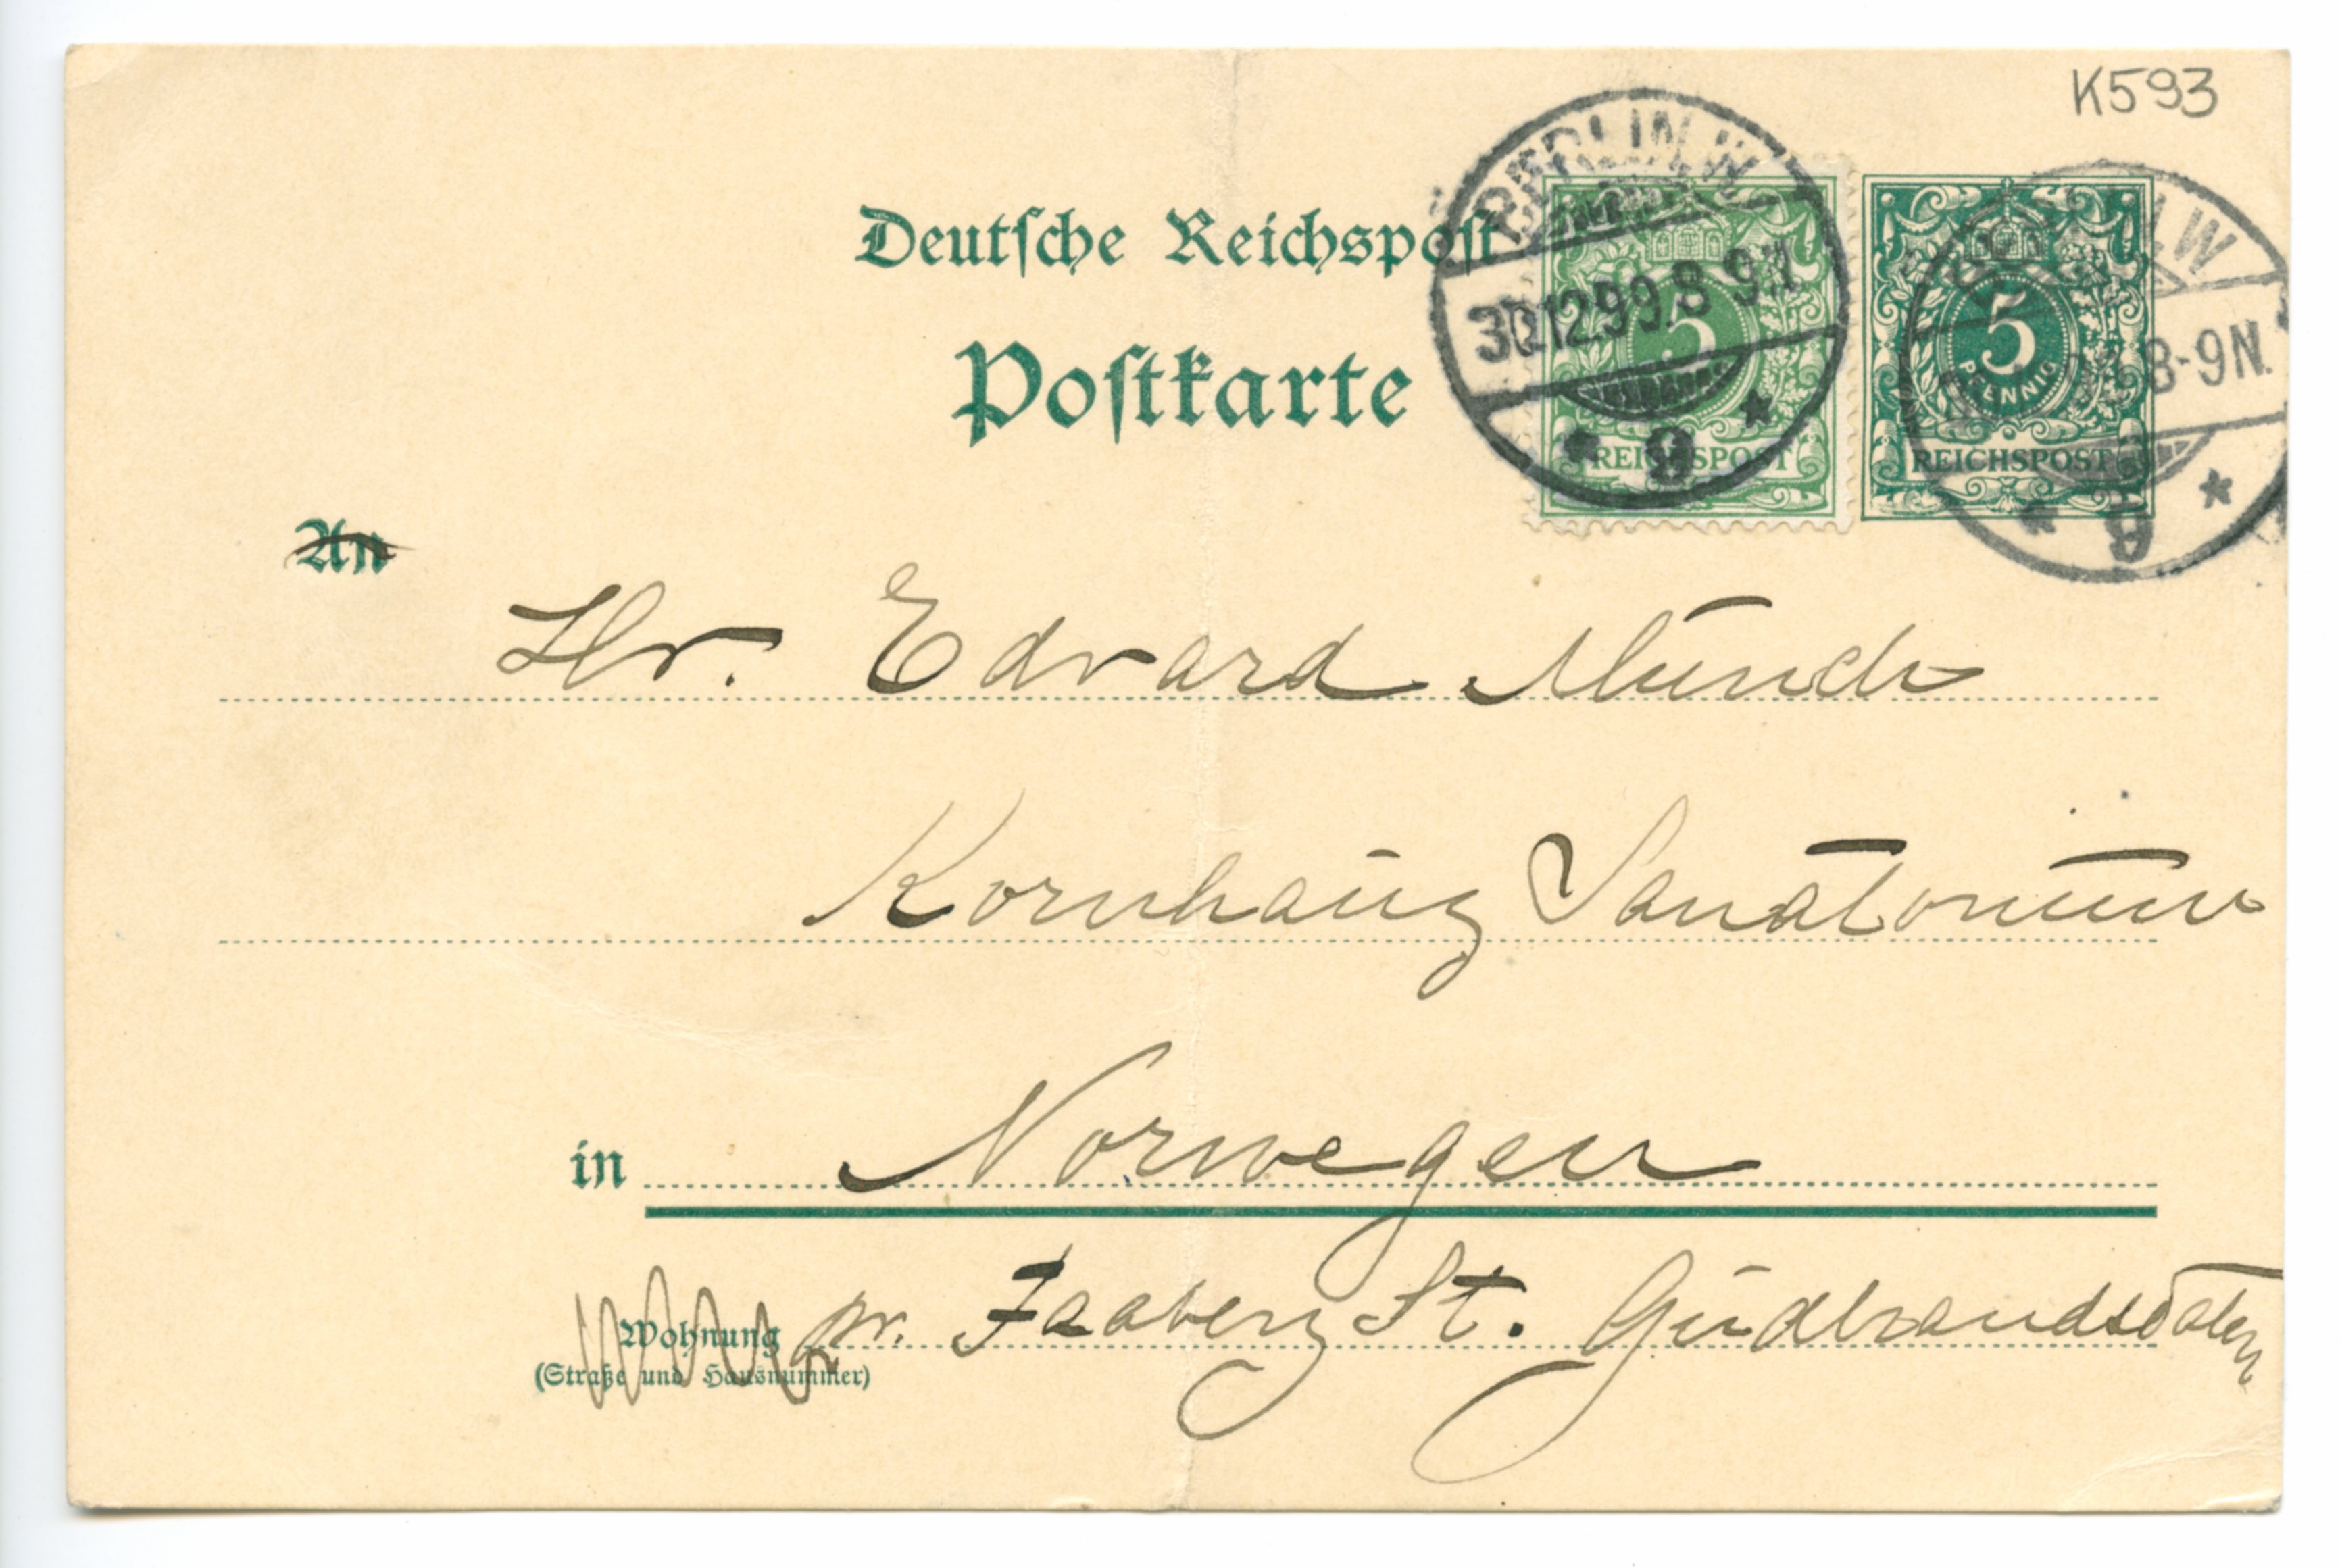 K593
Deutsche Reichspost
Postkarte
BERLIN.W
30.12.99.8-9N.
* 9 *
5
REICHSPOST
5
PFENNIG
REICHSPOST
W
8-9N.
An
Hr. Edvard Munch
Kornhaug Sanatorium
in Norwegen
Wohnung pr. Faaberg St. Gudbrandsdalen
(Straße und Hausnummer)